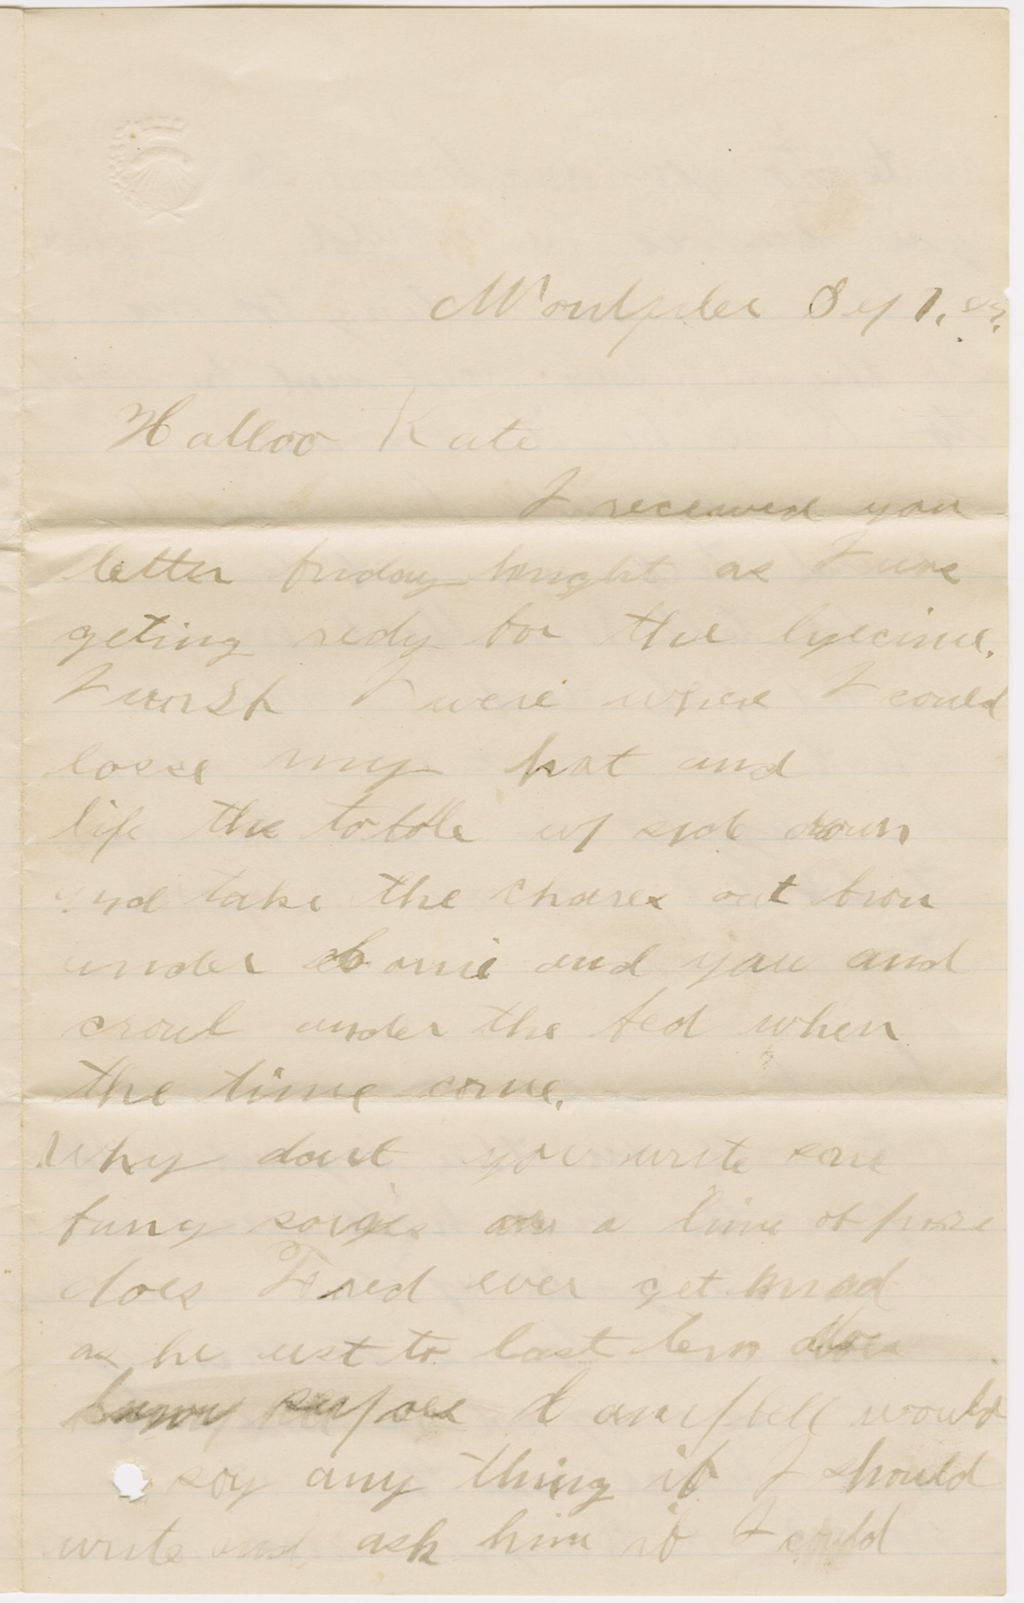 Montpilier Sep 1.
Halloo Kate
I received you
letter friday bnight as I was
geting redy for the lyecime.
I wish I were where I could
losse my hat and
life the tobble up side down
and take the chares out from
under and you and
croul under the bed when
the time come.
Why dont you write some
funy a line of
does Fred ever get mad
as he ust to last term
Campbell would
say any thing if I should
write and ask him if I could